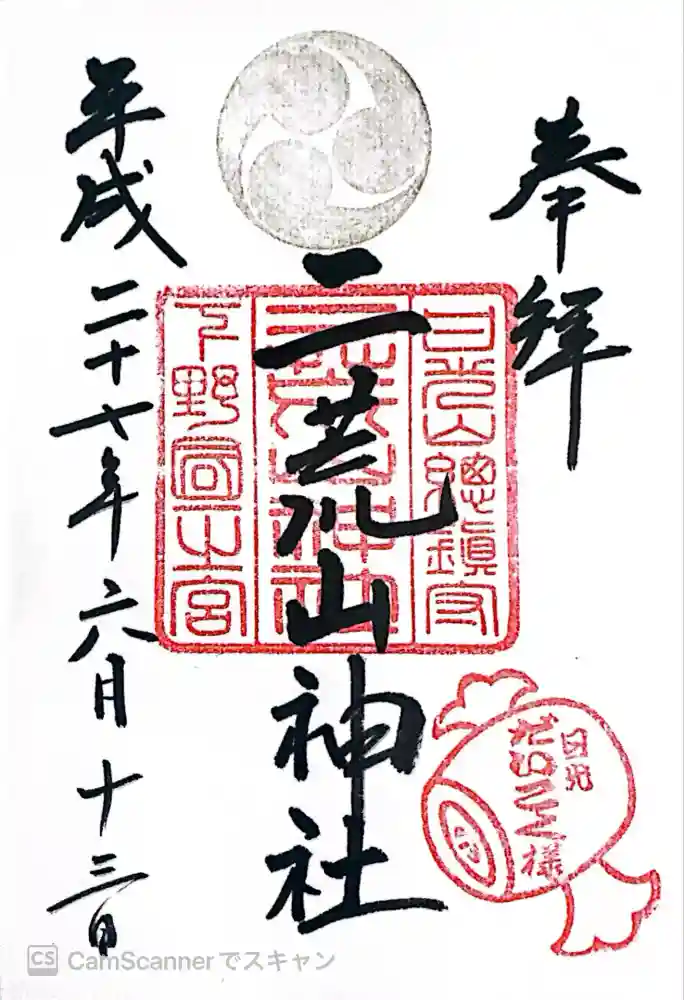 奉拝
日光山總鎮守
二荒山神社
二荒山神社
下野國一之宮
平成二十七年六月十三日
日光
だいこく様
CS CamScannerでスキャン